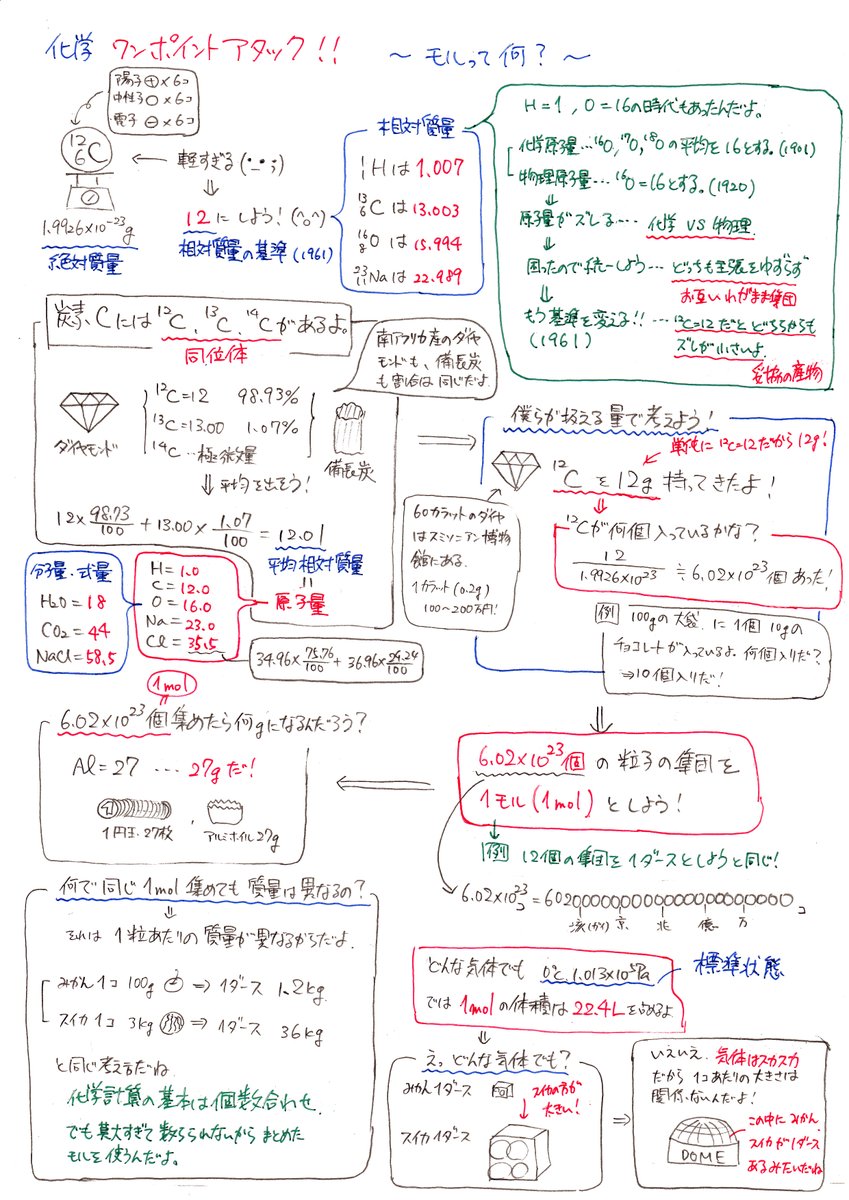 化学 ワンポイントアタック!! 〜 モルって何? 〜
陽子⊕×6コ
中性子○×6コ
電子⊖×6コ
¹²₆C
← 軽すぎる(・_・;)
⇓
12にしよう!(^o^)
相対質量の基準(1961)
1.9926×10⁻²³g
絶対質量
相対質量
¹₁Hは1.007
¹³₆Cは13.003
¹⁶₈Oは15.994
²³₁₁Naは22.989
H=1, O=16の時代もあったんだよ。
化学原子量…¹⁶O,¹⁷O,¹⁸Oの平均を16とする。(1901)
物理原子量…¹⁶O=16とする。(1920)
原子量がズレる…化学 VS 物理
困ったので統一しよう…どっちも主張をゆずらず
お互いわがまま集団
もう基準を変える!!…¹²C=12だとどちらからも
(1961)
ズレが小さいよ
妥協の産物
炭素、Cには¹²C、¹³C、¹⁴Cがあるよ。
同位体
南アフリカ産のダイヤ
モンドも、備長炭
も割合は同じだよ。
¹²C=12 98.93%
¹³C=13.00 1.07%
¹⁴C…極微量
ダイヤモンド
備長炭
⇓平均を出そう!
12×98.93/100+13.00×1.07/100=12.01
平均相対質量
=
原子量
分子量・式量
H₂O=18
CO₂=44
NaCl=58.5
H=1.0
C=12.0
O=16.0
Na=23.0
Cl=35.5
34.96×75.76/100+36.96×24.24/100
僕らが扱える量で考えよう!
単純に¹²C=12だから12g!
¹²Cを12g持ってきたよ!
¹²Cが何個入っているかな?
12/1.9926×10²³≒6.02×10²³個あった!
60カラットのダイヤ
はスミソニアン博物
館にある。
1カラット(0.2g)
100〜200万円!
例 100gの大袋に1個10gの
チョコレートが入っているよ。何個入りだ?
⇒10個入りだ!
1mol
6.02×10²³個集めたら何gになるんだろう?
Al=27 …27gだ!
1円玉27枚、アルミホイル27g
6.02×10²³個の粒子の集団を
1モル(1mol)としよう!
例 12個の集団を1ダースとしようと同じ!
6.02×10²³コ=602000000000000000000000コ
垓(がい) 京 兆 億 万
何で同じ1mol集めても質量は異なるの?
⇓
それは1粒あたりの質量が異なるからだよ。
みかん1コ 100g ⇒1ダース 1.2kg
スイカ1コ 3kg ⇒1ダース 36kg
と同じ考えだね
化学計算の基本は個数合わせ
でも莫大すぎて数えられないからまとめた
モルを使うんだよ。
どんな気体でも 0℃、1.013×10⁵Pa
では1molの体積は22.4Lを占めるよ
標準状態
えっどんな気体でも?
みかん1ダース
スイカの方が
大きい!
スイカ1ダース
いえいえ、気体はスカスカ
だから1コあたりの大きさは
関係ないんだよ!
DOME
この中にみかん、
スイカが1ダース
あるみたいだね